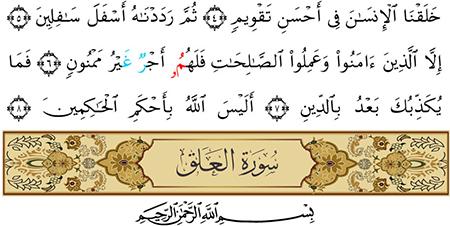 خَلَقْنَا ٱلْإِنسَـٰنَ فِىٓ أَحْسَنِ تَقْوِيمٍ ﴿٤﴾ ثُمَّ رَدَدْنَـٰهُ أَسْفَلَ سَـٰفِلِينَ ﴿٥﴾
إِلَّا ٱلَّذِينَ ءَامَنُوا۟ وَعَمِلُوا۟ ٱلصَّـٰلِحَـٰتِ فَلَهُمُۥٓ أَجْرٌ غَيْرُ مَمْنُونٍ ﴿٦﴾ فَمَا
يُكَذِّبُكَ بَعْدُ بِٱلدِّينِ ﴿٧﴾ أَلَيْسَ ٱللَّهُ بِأَحْكَمِ ٱلْحَـٰكِمِينَ ﴿٨﴾
سُورَةُ الْعَلَقِ
بِسْمِ ٱللَّهِ ٱلرَّحْمَـٰنِ ٱلرَّحِيمِ